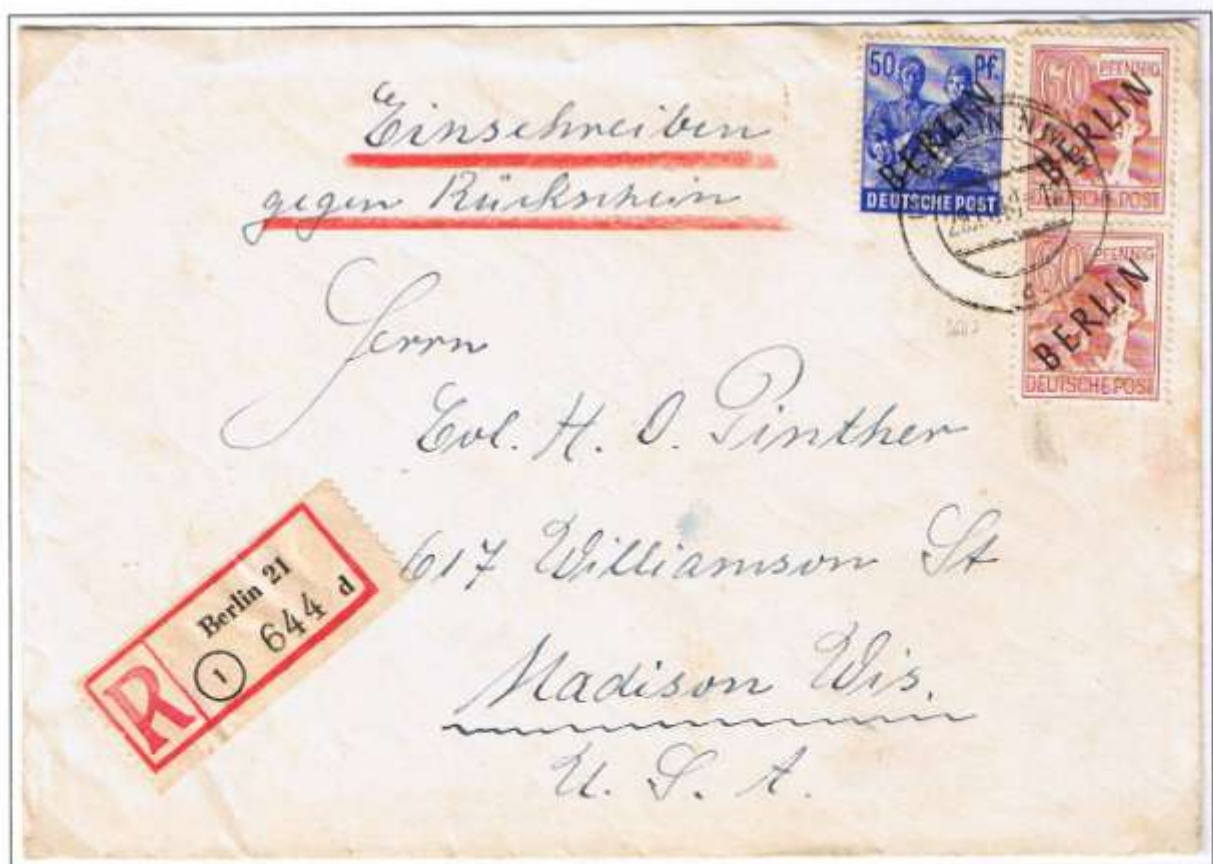 Einschreiben
gegen Rückschein
50 Pf.
BERLIN
DEUTSCHE POST
60 PFENNIG
BERLIN
DEUTSCHE POST
60 PFENNIG
BERLIN
DEUTSCHE POST
Herrn
Col. H. O. Pinther
617 Williamson St
Madison Wis.
U. S. A.
R
Berlin 21
1 644 d